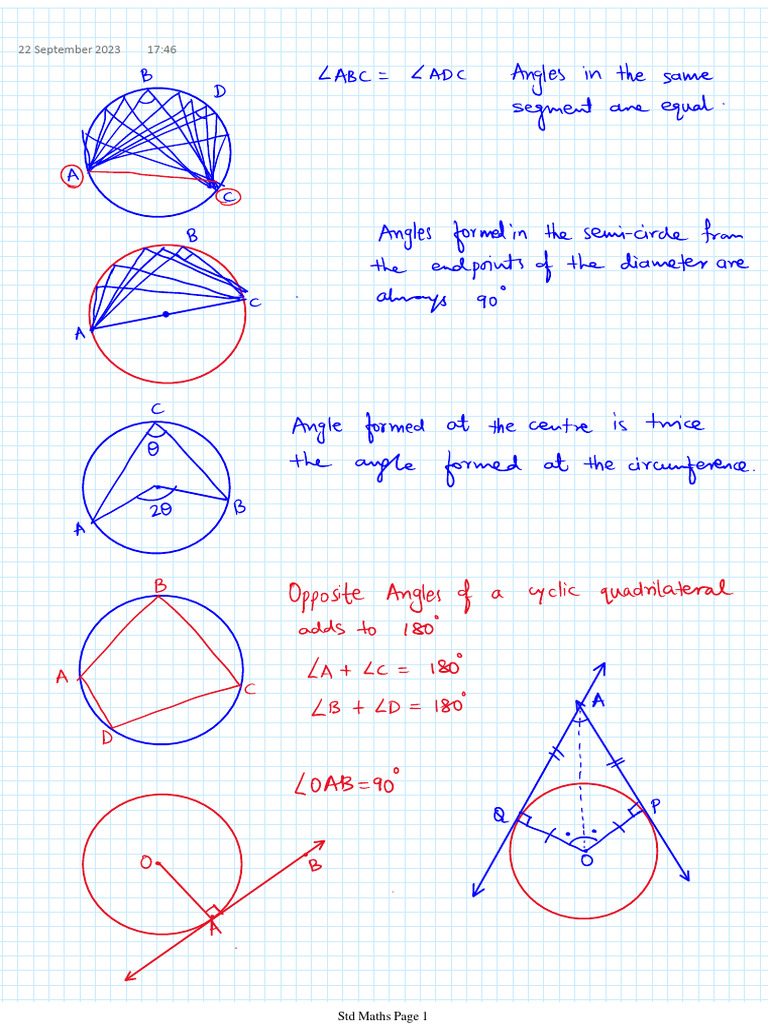 22 September 2023 17:46
B
D
A
C
∠ABC = ∠ADC Angles in the same
segment are equal.
B
C
A
Angles formed in the semi-circle from
the endpoints of the diameter are
always 90°
C
θ
2θ
A
B
Angle formed at the centre is twice
the angle formed at the circumference.
B
A
C
D
Opposite Angles of a cyclic quadrilateral
adds to 180°
∠A + ∠C = 180°
∠B + ∠D = 180°
∠OAB = 90°
O
B
A
A
Q
P
O
Std Maths Page 1